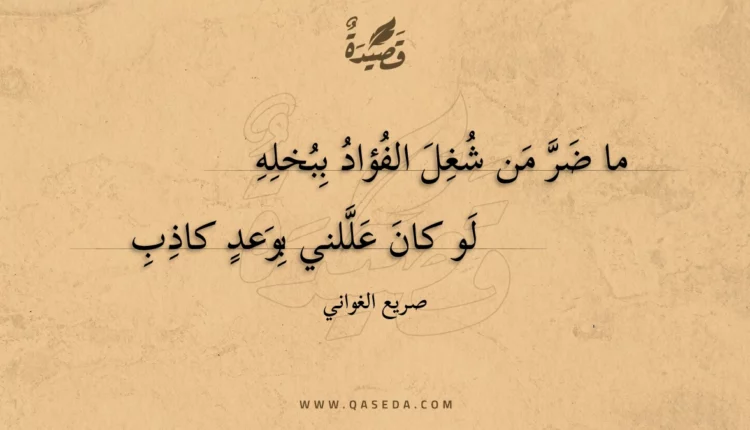 قَصِيدَةٌ
ما ضَرَّ مَن شُغِلَ الفُؤادُ بِبُخلِهِ
لَو كانَ عَلَّلَني بِوَعدٍ كاذِبِ
صريع الغواني
WWW.QASEDA.COM